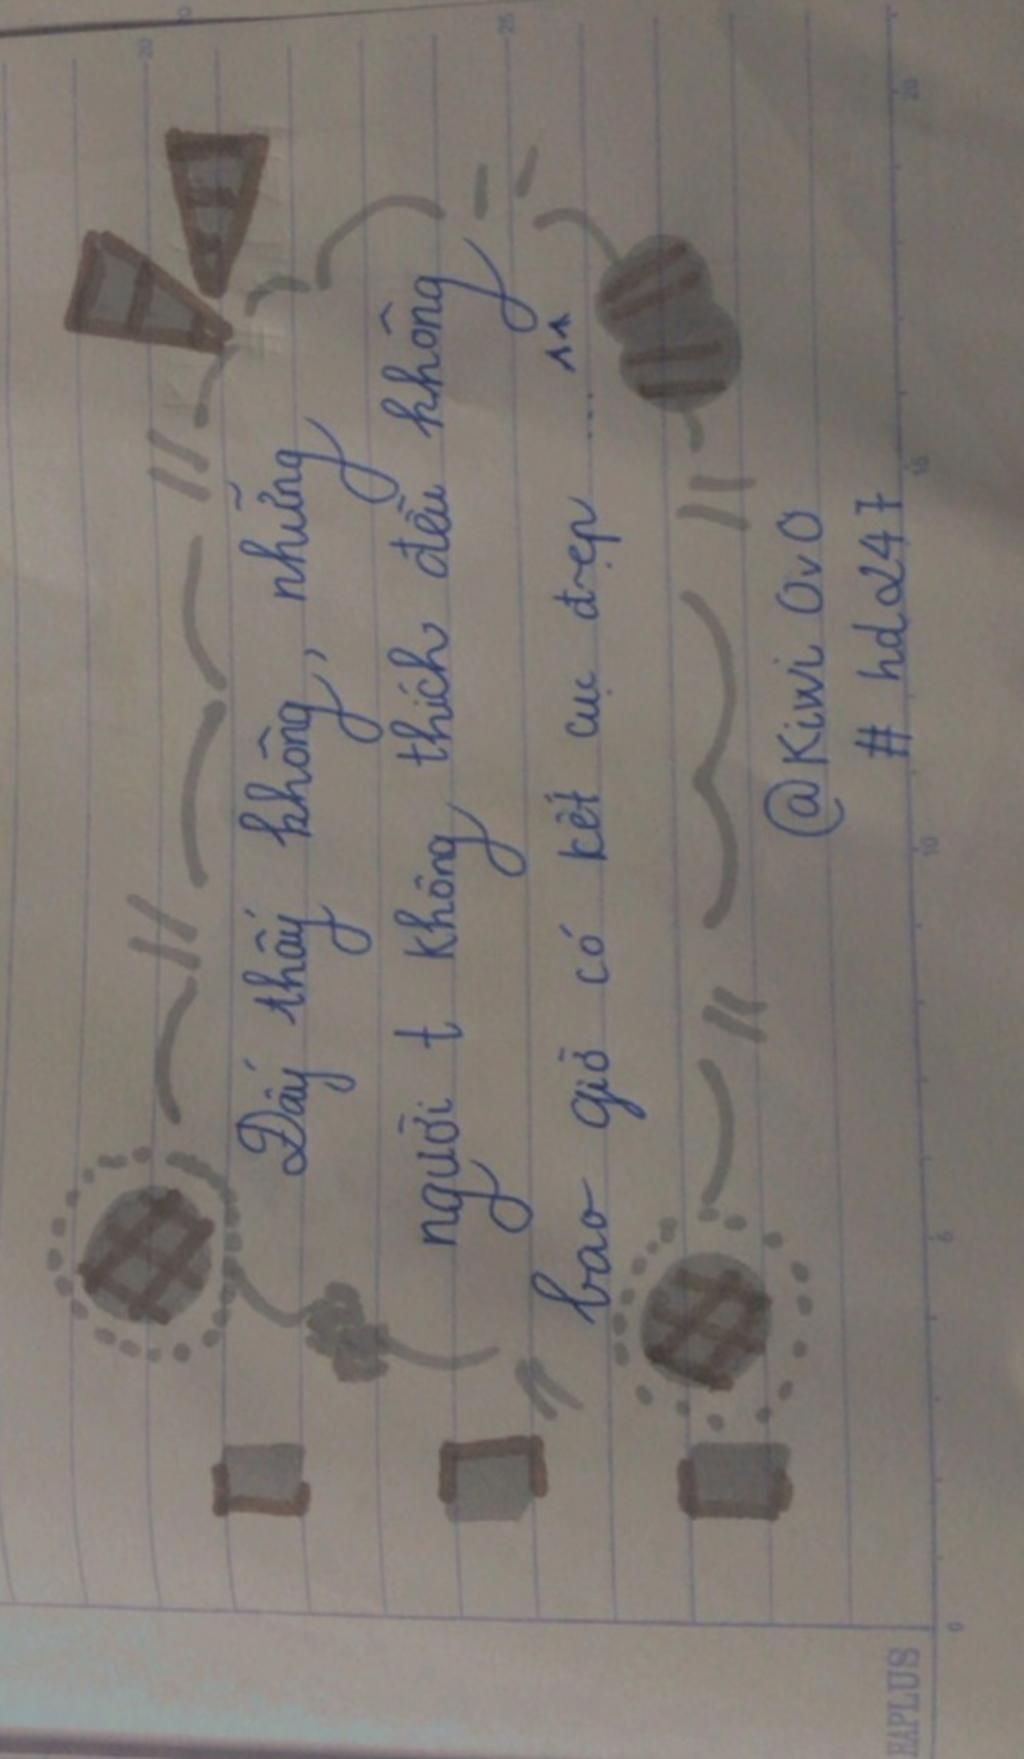 Đấy thấy không, những
người t không thích đều không
bao giờ có kết cục đẹp ..... ^^
@Kiwi OvO
# hda247
20
25
20
15
10
RAPLUS